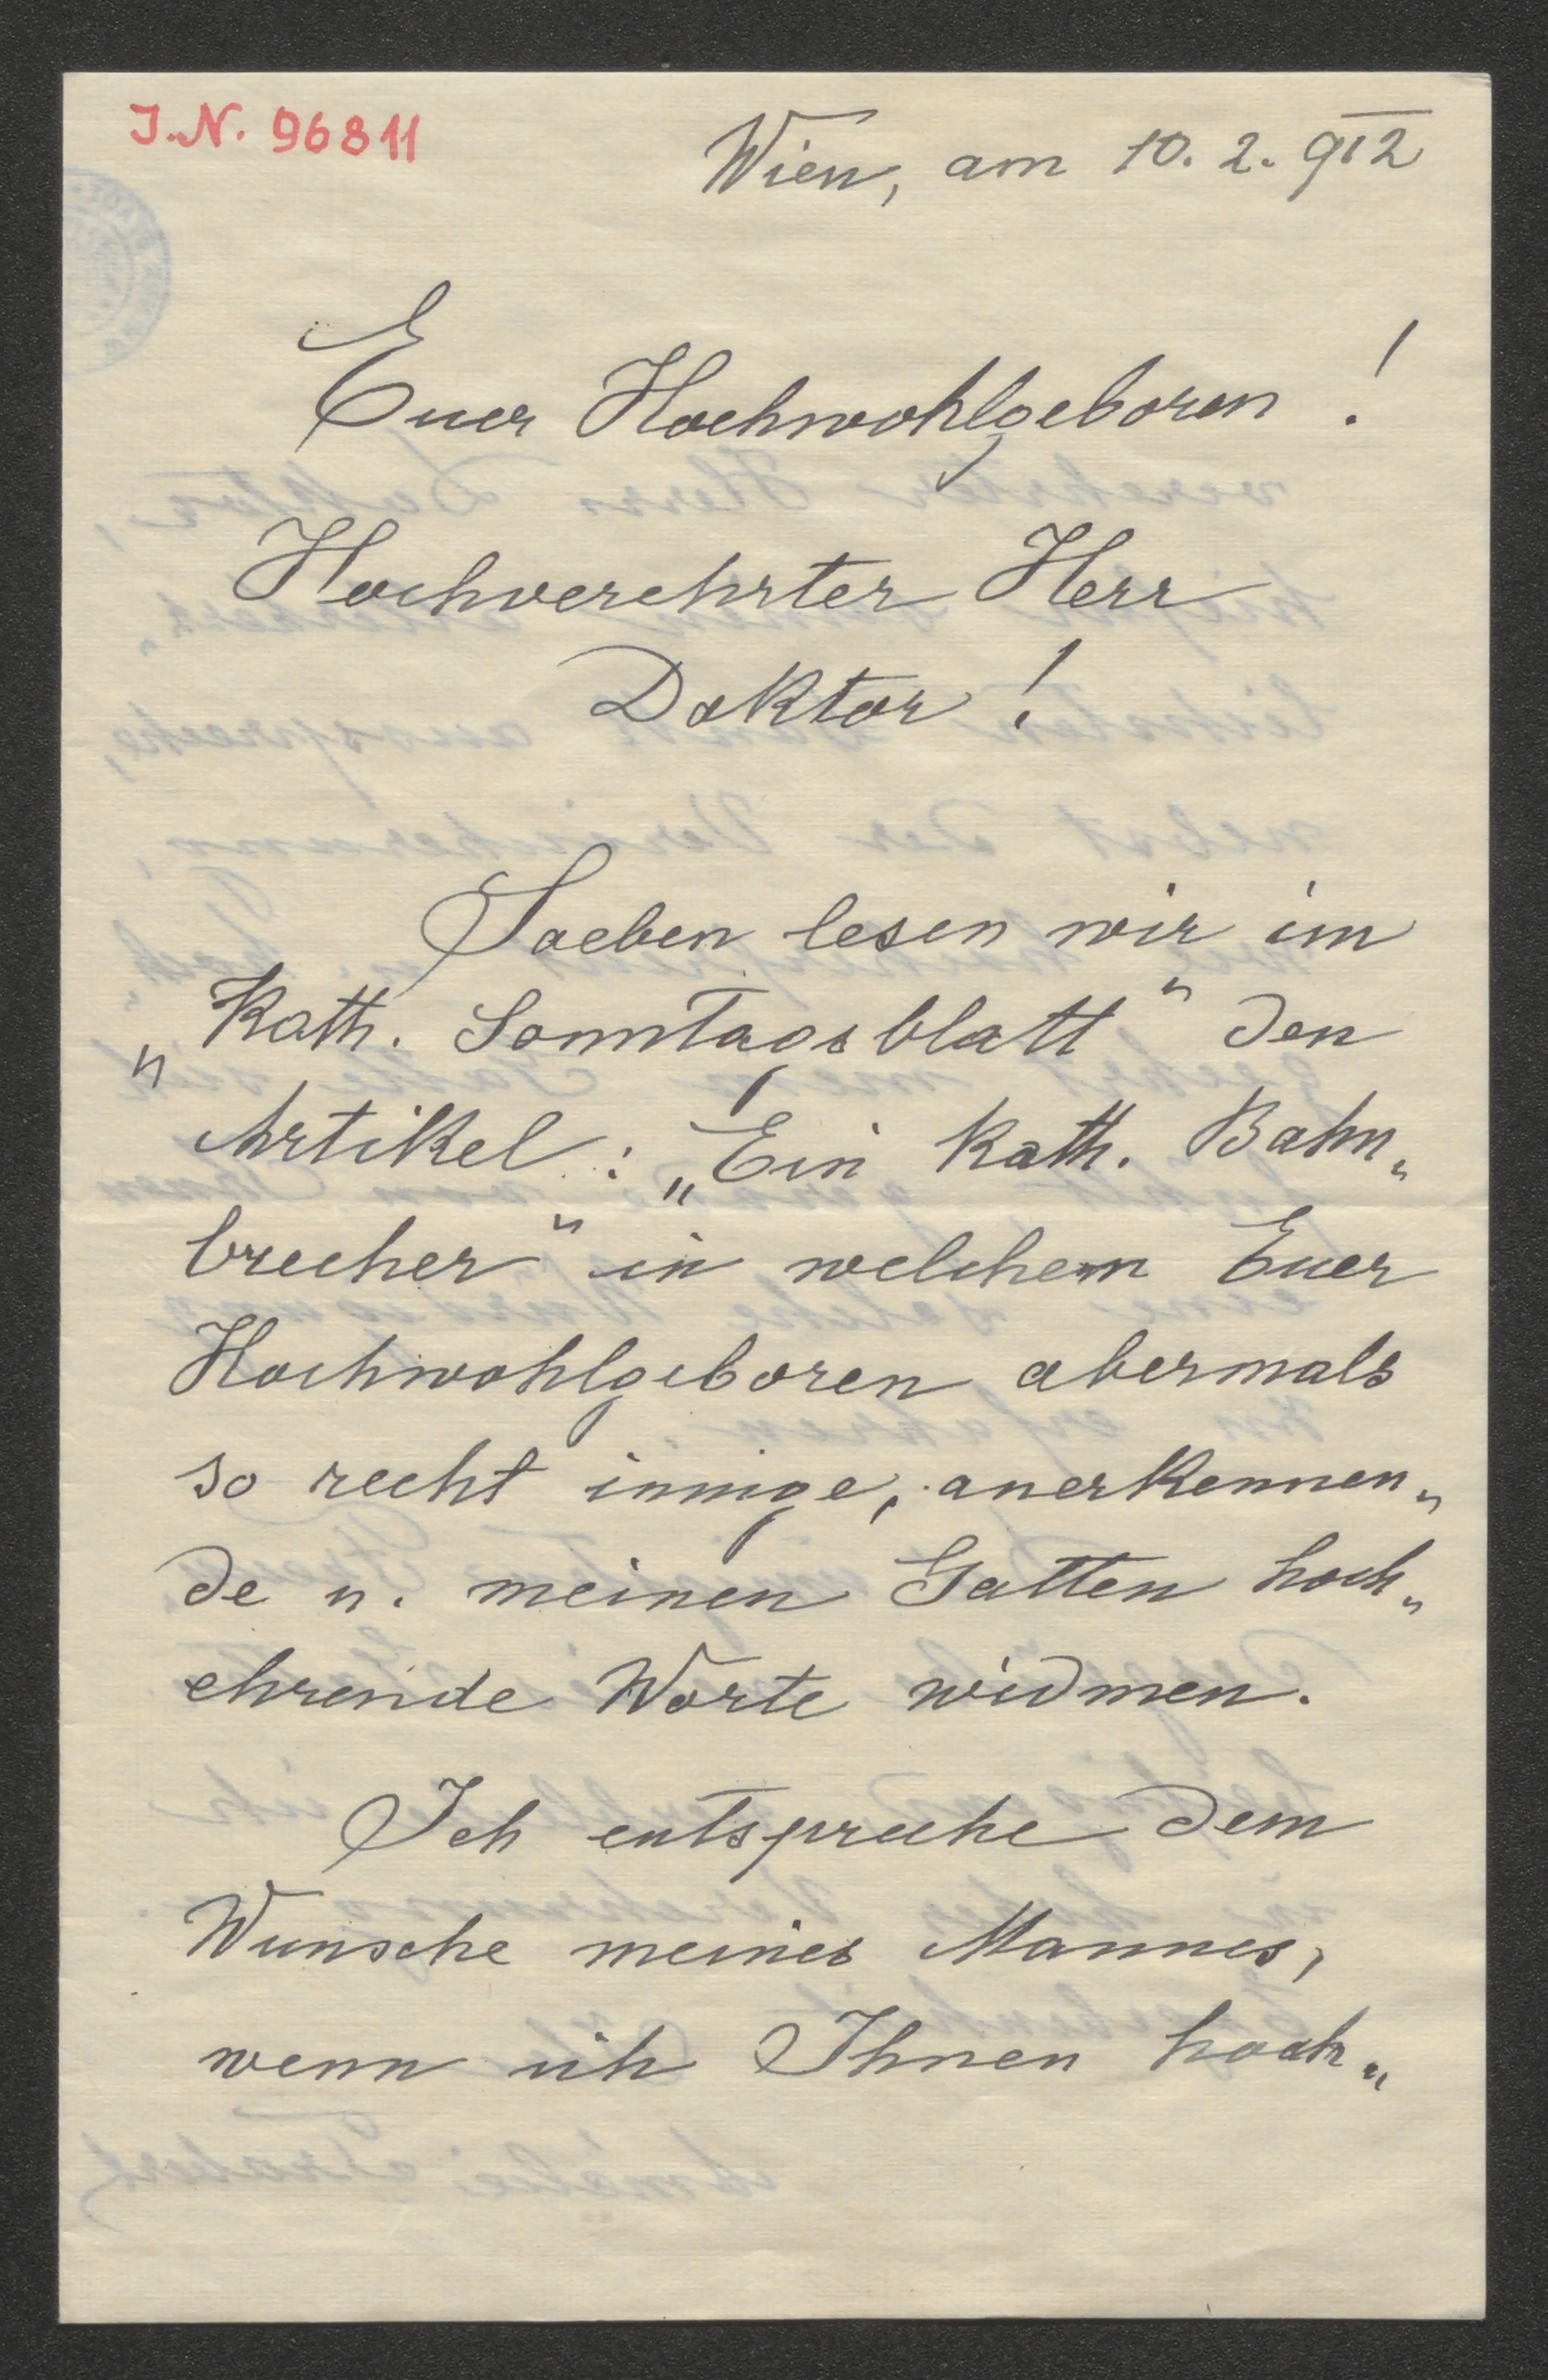 J.N. 96811
Wien, am 10. 2. 912
Euer Hochwohlgeboren !
Hochverehrter Herr
Doktor !
Soeben lesen wir im
„Kath. Sonntagsblatt" den
Artikel : „Ein kath. Bahn„
brecher" in welchem Euer
Hochwohlgeboren abermals
so recht innige, anerkennen„
de u. meinen Gatten hoch„
ehrende Worte widmen.
Ich entspreche dem
Wunsche meines Mannes,
wenn ich Ihnen hoch„